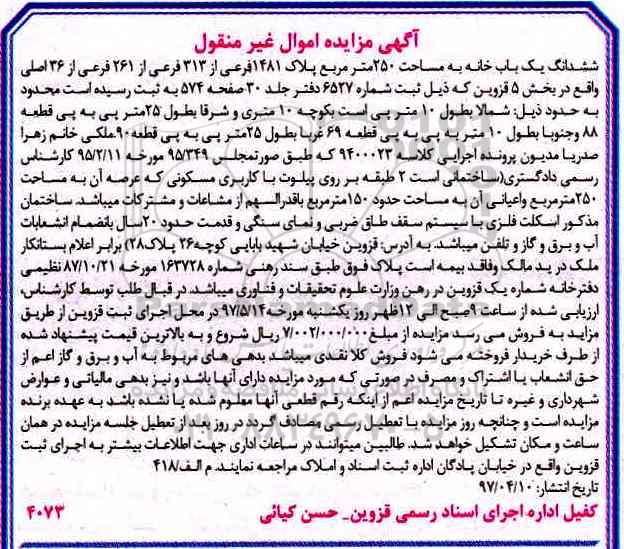 آگهی مزایده اموال غیر منقول
ششدانگ یک باب خانه به مساحت ۲۵۰متر مربع پلاک ۱۴۸۱فرعی از ۳۱۳ فرعی از ۲۶۱ فرعی از ۳۶ اصلی
واقع در بخش ۵ قزوین که ذیل ثبت شماره ۶۵۲۷ دفتر جلد ۳۰ صفحه ۵۷۴ به ثبت رسیده است محدود
به حدود ذیل: شمالا بطول ۱۰ متر پی است بکوچه ۱۰ متری و شرقا بطول ۲۵متر پی به پی قطعه
۸۸ وجنوبا بطول ۱۰ متر به پی به پی قطعه ۶۹ غربا بطول ۲۵متر پی به پی قطعه۹۰ملکی خانم زهرا
صدریا مدیون پرونده اجرایی کلاسه ۹۴۰۰۰۲۳ که طبق صورتمجلس ۹۵/۳۴۹ مورخه ۹۵/۲/۱۱ کارشناس
رسمی دادگستری(ساختمانی است ۲ طبقه بر روی پیلوت با کاربری مسکونی که عرصه آن به مساحت
۲۵۰مترمربع واعیانی آن به مساحت حدود ۱۵۰مترمربع باقدرالسهم از مشاعات و مشترکات میباشد. ساختمان
مذکور اسکلت فلزی با سیستم سقف طاق ضربی و نمای سنگی و قدمت حدود ۲۰سال بانضمام انشعابات
آب و برق و گاز و تلفن میباشد. به آدرس: قزوین خیابان شهید بابایی کوچه۳۶ پلاک۲۸) برابر اعلام بستانکار
ملک در ید مالک وفاقد بیمه است پلاک فوق طبق سند رهنی شماره ۱۶۳۷۲۸ مورخه ۸۷/۱۰/۲۱ تنظیمی
دفترخانه شماره یک قزوین در رهن وزارت علوم تحقیقات و فناوری میباشد. در قبال طلب توسط کارشناس،
ارزیابی شده از ساعت ۹صبح الی ۱۲ظهر روز یکشنبه مورخه۹۷/۵/۱۴ در محل اجرای ثبت قزوین از طریق
مزاید به فروش می رسد مزایده از مبلغ۷/۰۰۲/۰۰۰/۰۰۰ ریال شروع و به بالاترین قیمت پیشنهاد شده
از طرف خریدار فروخته می شود فروش کلا نقدی میباشد بدهی های مربوط به آب و برق و گاز اعم از
حق انشعاب یا اشتراک و مصرف در صورتی که مورد مزایده دارای آنها باشد و نیز بدهی مالیاتی و عوارض
شهرداری و غیره تا تاریخ مزایده اعم از اینکه رقم قطعی آنها معلوم شده یا نشده باشد به عهده برنده
مزایده است و چنانچه روز مزایده با تعطیل رسمی مصادف گردد در روز بعد از تعطیل جلسه مزایده در همان
ساعت و مکان تشکیل خواهد شد. طالبین میتوانند در ساعات اداری جهت اطلاعات بیشتر به اجرای ثبت
قزوین واقع در خیابان پادگان اداره ثبت اسناد و املاک مراجعه نمایند. م الف/۴۱۸
تاریخ انتشار: ۹۷/۰۴/۱۰
کفیل اداره اجرای اسناد رسمی قزوین_ حسن کیائی ۴۰۷۳